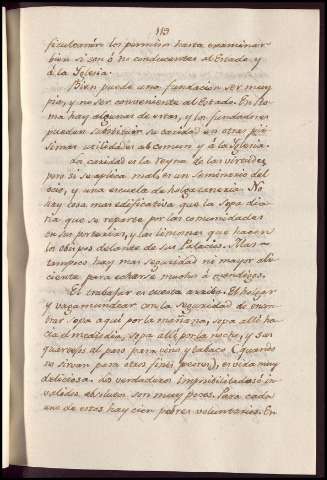 113
ficultarán los permisos hasta examinar
bien si son ó no conducentes al Estado y
á la Iglesia.
Bien puede una fundacion ser muy
pia, y no ser conveniente al Estado. En Ro
ma hay algunas de estas, y los fundadores
pueden substituir su caridad en otras
utilidades al comun y á la Iglesia.
La caridad es la reyna de las virtudes
pero si se aplica mal, es un seminario del
ocio, y una escuela de holgazaneria. No
hay cosa mas edificativa que la sopa dia
ria que se reparte por las comunidades
en sus porterias, y las limosnas que hacen
los obispos delante de sus Palacios. Mas
tampoco hay mas seguridad ni mayor ali
ciente para echarse muchos á mendigos.
El trabajar es cuesta arriba. El holgar
y vagamundear con la seguridad de encon
trar sopa aqui por la mañana, sopa allá ha
cia el mediodia, sopa allí por la noche, y sus
quartejos al paso para vino y tabaco (quando
no sirvan para otros fines peores), es vida muy
deliciosa. Los verdaderos imposibilitados ó in
validos absolutos son muy pocos. Para cada
uno de estos hay cien pobres voluntarios. En